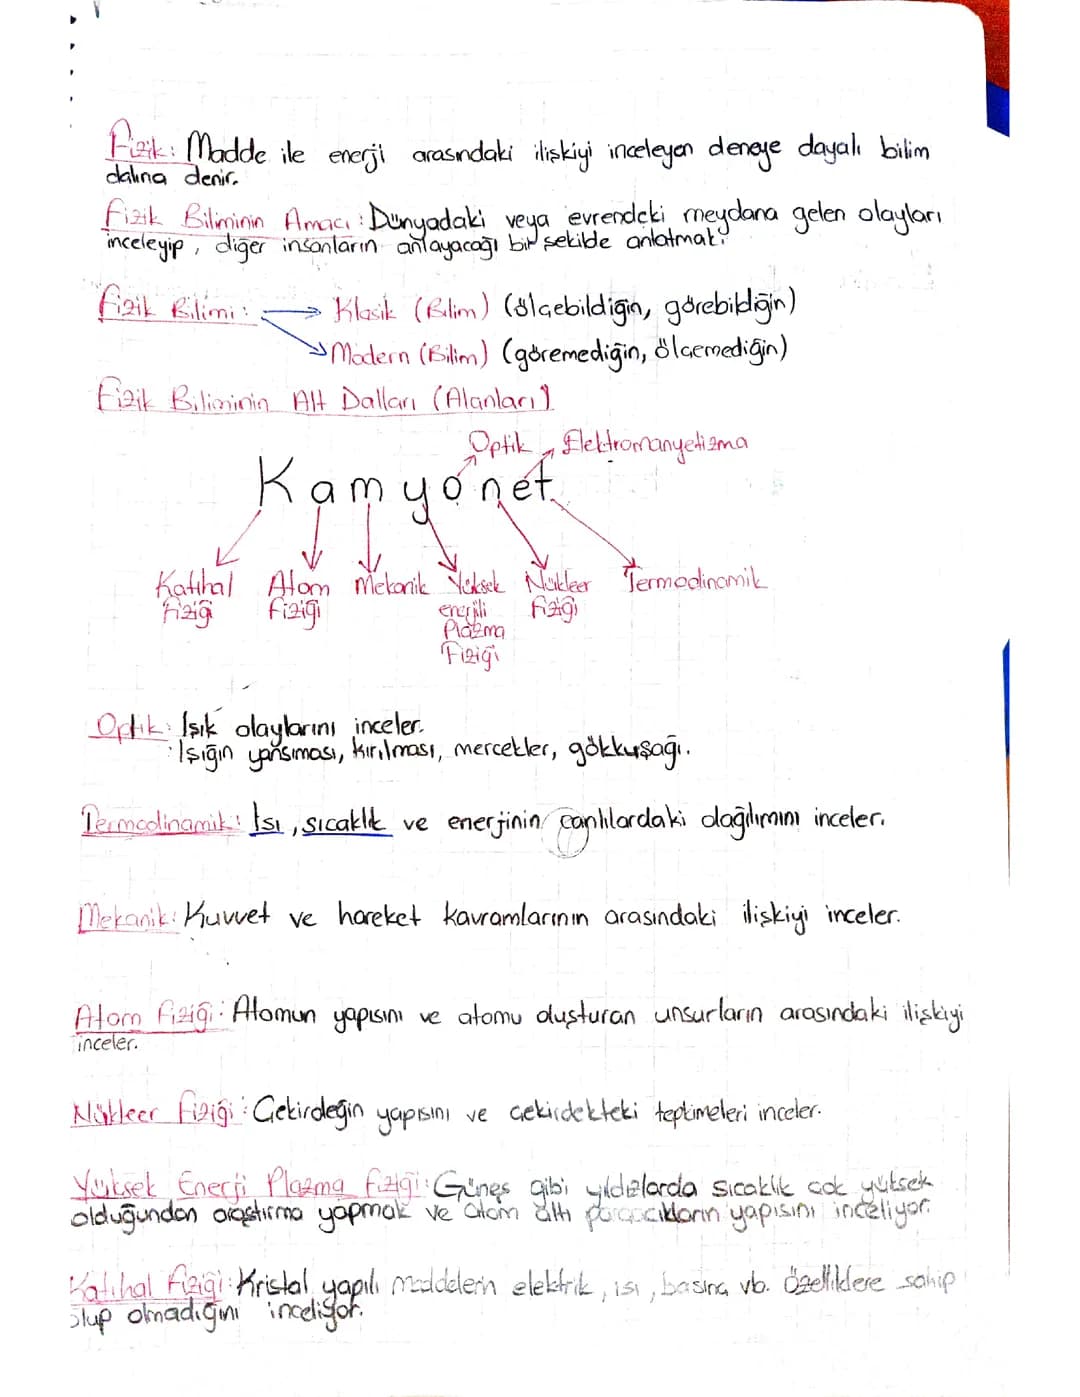 Fizik: Madde ile enerji arasındaki ilişkiyi inceleyen deneye dayalı bilim
dalına denir.
Fizik Biliminin Amacı: Dünyadaki veya evrendeki meydana gelen olayları
inceleyip, diğer insanların anlayacağı bir şekilde anlatmak.
Fizik Bilimi: Klasik (Bilim) (ölçebildiğin, görebildiğin)
Modern (Bilim) (göremediğin, ölçemediğin)
Fizik Biliminin Alt Dalları (Alanları)
Optik Elektromanyetizma
Kamyonet
Katıhal Atom Mekanik Yüksek Nükleer Termodinamik
Fiziği Fiziği enerjili Fiziği
Plazma
Fiziği
Optik: Işık olaylarını inceler.
Işığın yansıması, kırılması, mercekler, gökkuşağı.
Termodinamik: Isı, sıcaklık ve enerjinin canlılardaki dağılımını inceler.
Mekanik: Kuvvet ve hareket kavramlarının arasındaki ilişkiyi inceler.
Atom Fiziği: Atomun yapısını ve atomu oluşturan unsurların arasındaki ilişkiyi
inceler.
Nükleer Fiziği: Çekirdeğin yapısını ve çekirdekteki tepkimeleri inceler.
Yüksek Enerji Plazma Fiziği: Güneş gibi yıldızlarda sıcaklık çok yüksek
olduğundan araştırma yapmak ve atom altı parçacıkların yapısını inceliyor.
Katıhal Fiziği: Kristal yapılı maddelerin elektrik, ısı, basınç vb. özelliklere sahip
olup olmadığını inceliyor.